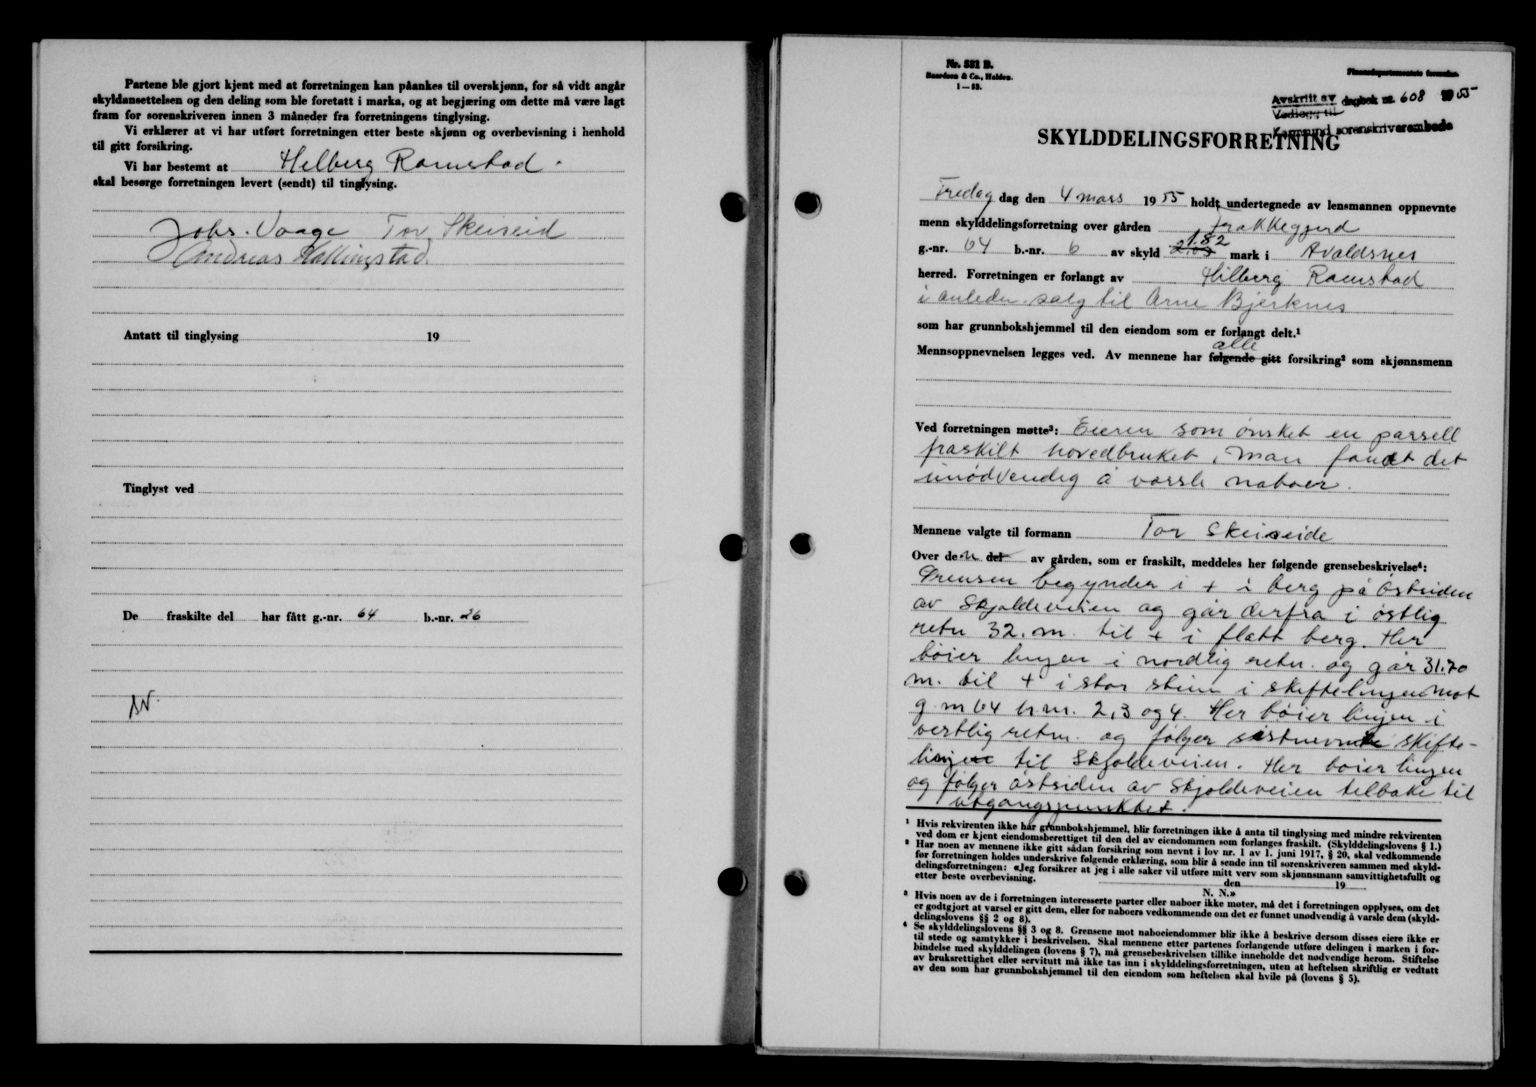 Partene ble gjort kjent med at forretningen kan påankes til overskjønn, for så vidt angår
skyldansettelsen og den deling som ble foretatt i marka, og at begjæring om dette må være lagt
fram for sorenskriveren innen 3 måneder fra forretningens tinglysing.
Vi erklærer at vi har utført forretningen etter beste skjønn og overbevisning i henhold
til gitt forsikring.
Vi har bestemt at Helberg Ramstad.
skal besørge forretningen levert (sendt) til tinglysing.
Johs. Vaage Tor Skeiseid
Andreas Hallingstad.
Antatt til tinglysing 19
Tinglyst ved
De fraskilte del har fått g.-nr. 64 b.-nr. 26
Nr. 531 B.
Baardsen & Co., Halden.
1 — 53.
Finansdepartementets formular.
Avskrift av dagbok nr. 608 1955
Vedlegg til
Karmsund sorenskriverembede
SKYLDDELINGSFORRETNING
Fredag dag den 4 mars 1955 holdt undertegnede av lensmannen oppnevnte
menn skylddelingsforretning over gården Frakkegjerd
1.82
g.-nr. 64 b.-nr. 6 av skyld 2.03 mark i Avaldsnes
herred. Forretningen er forlangt av Hilberg Ramstad
i anledn. salg til Arne Bjerknes
som har grunnbokshjemmel til den eiendom som er forlangt delt.¹
alle
Mennsoppnevnelsen legges ved. Av mennene har følgende gitt forsikring² som skjønnsmenn
Ved forretningen møtte³: Eieren som ønsket en parsell
fraskilt hovedbruket, man fandt det
unødvendig å varsle naboer.
Mennene valgte til formann Tor Skeiseide
Over den del av gården, som er fraskilt, meddeles her følgende grensebeskrivelse⁴:
Grensen begynder i + i berg på østsiden
av Skjoldeveien og går derfra i østlig
retn 32. m. til + i flatt berg. Her
bøier linjen i nordlig retn. og går 31.20
m. til + i stor stein i skiftelinjen mot
g. nr 64 b nr. 2, 3 og 4. Her bøier linjen i
vestlig retn. og følger sistnevnte skifte-
linjen til Skjoldeveien. Her bøier linjen
og følger østsiden av Skjoldeveien tilbake til
utgangspunktet.
¹ Hvis rekvirenten ikke har grunnbokshjemmel, blir forretningen ikke å anta til tinglysing med mindre rekvirenten
ved dom er kjent eiendomsberettiget til den del av eiendommen som forlanges fraskilt. (Skylddelingslovens § 1.)
² Har noen av mennene ikke gitt sådan forsikring som nevnt i lov nr. 1 av 1. juni 1917, § 20, skal vedkommende
før forretningen holdes underskrive følgende erklæring, som blir å sende inn til sorenskriveren sammen med skyld-
delingsforretningen: «Jeg forsikrer at jeg i alle saker vil utføre mitt verv som skjønnsmann samvittighetsfullt og
etter beste overbevisning. den 19
N. N.»
³ Hvis noen av de i forretningen interesserte parter eller naboer ikke møter, må det i forretningen opplyses, om det
er godtgjort at varsel er gitt dem, eller for naboers vedkommende om det er funnet unødvendig å varsle dem (skyld-
delingslovens §§ 2 og 8).
⁴ Se skylddelingslovens §§ 3 og 8. Grensene mot naboeiendommer blir ikke å beskrive dersom disses eiere ikke er
til stede og samtykker i beskrivelsen. Skal mennene etter partenes forlangende utføre delingen i marken i for-
bindelse med skylddelingen (lovens § 7), må grensebeskrivelsen tillike inneholde det nødvendige herom. Stiftelse
av bruksrettighet eller servitutt må ikke tas inn i skylddelingsforretningen, uten at heftelsen skriftlig er vedtatt
av den som har grunnbokshjemmel til den eiendom som heftelsen skal hvile på (lovens § 5).